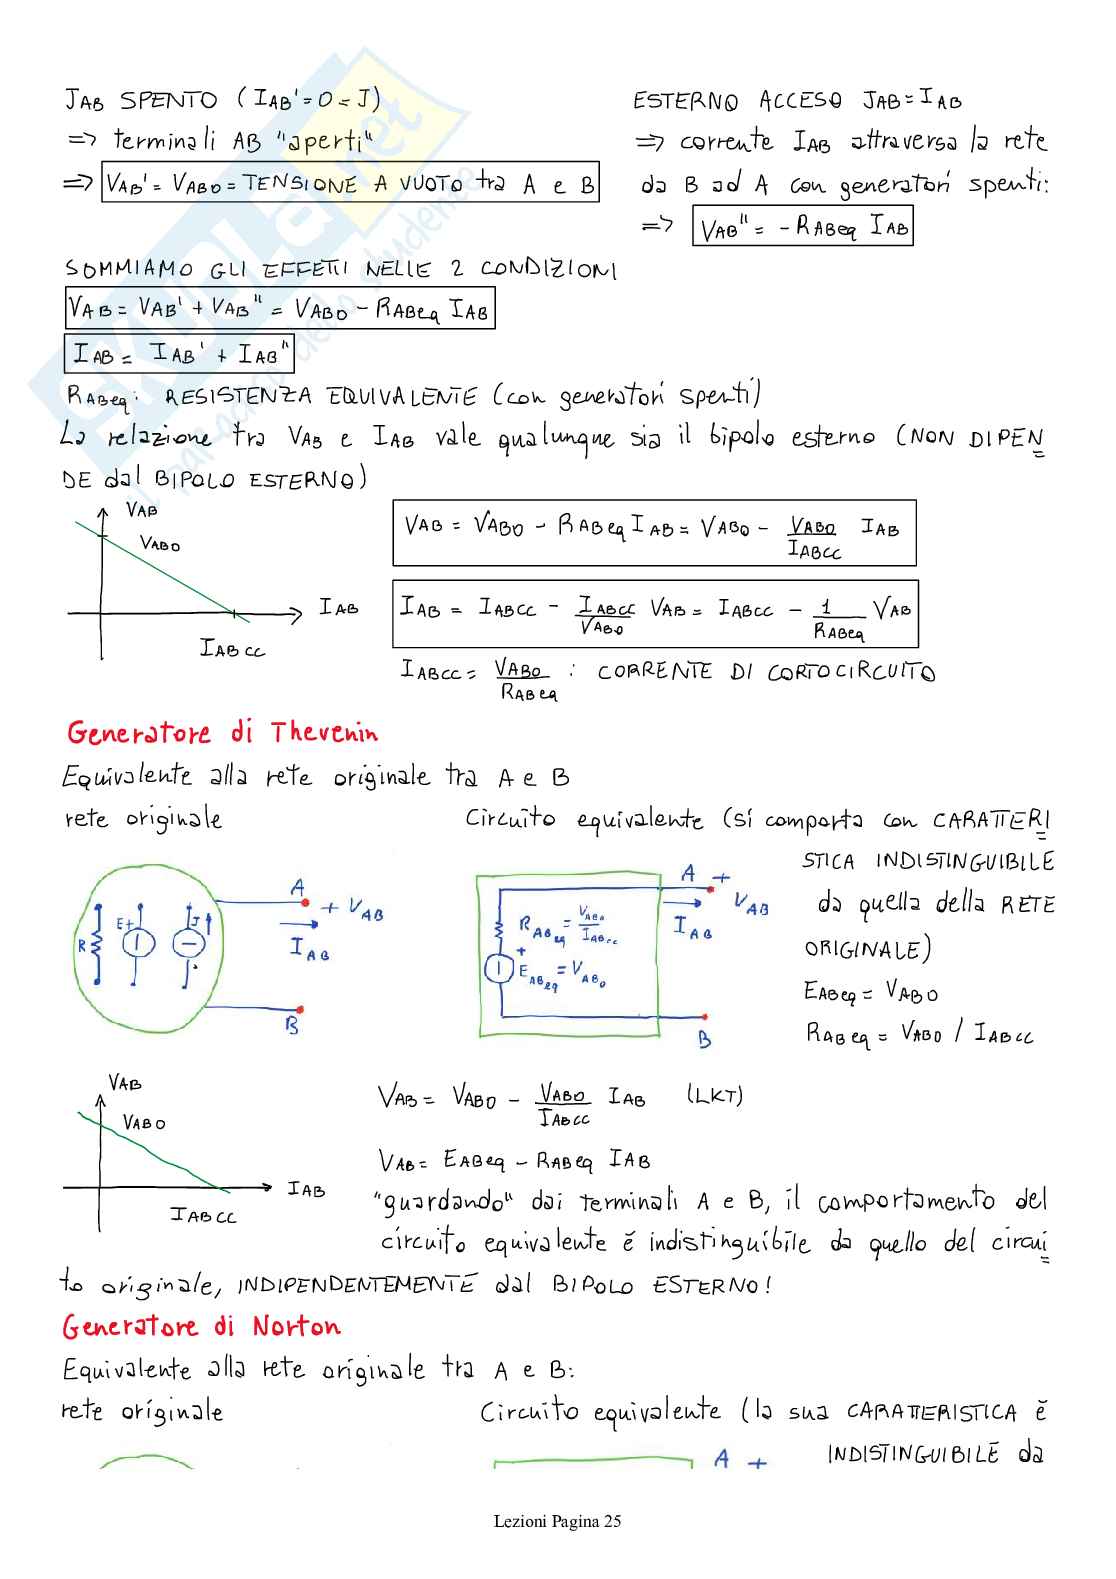 JAB SPENTO (IAB' = 0 = J)
=> terminali AB "aperti"
=> VAB' = VAB0 = TENSIONE A VUOTO tra A e B
ESTERNO ACCESO JAB = IAB
=> corrente IAB attraversa la rete
da B ad A con generatori spenti:
=> VAB" = - RABeq IAB
SOMMIAMO GLI EFFETTI NELLE 2 CONDIZIONI
VAB = VAB' + VAB" = VAB0 - RABeq IAB
IAB = IAB' + IAB"
RABeq: RESISTENZA EQUIVALENTE (con generatori spenti)
La relazione tra VAB e IAB vale qualunque sia il bipolo esterno (NON DIPEN
DE dal BIPOLO ESTERNO)
VAB
VAB0
IAB
IABCC
VAB = VAB0 - RABeq IAB = VAB0 - VAB0/IABCC IAB
IAB = IABCC - IABCC/VAB0 VAB = IABCC - 1/RABeq VAB
IABCC = VAB0/RABeq : CORRENTE DI CORTOCIRCUITO
Generatore di Thevenin
Equivalente alla rete originale tra A e B
rete originale
Circuito equivalente (si comporta con CARATTERI
STICA INDISTINGUIBILE
da quella della RETE
ORIGINALE)
EABeq = VAB0
RABeq = VAB0 / IABCC
R
E+
J
A
+ VAB
IAB
B
RABeq = VAB0/IABcc
+
EABeq = VAB0
A +
VAB
IAB
B
VAB
VAB0
IAB
IABCC
VAB = VAB0 - VAB0/IABCC IAB (LKT)
VAB = EABeq - RABeq IAB
"guardando" dai terminali A e B, il comportamento del
circuito equivalente è indistinguibile da quello del circui
to originale, INDIPENDENTEMENTE dal BIPOLO ESTERNO!
Generatore di Norton
Equivalente alla rete originale tra A e B:
rete originale
Circuito equivalente (la sua CARATTERISTICA è
INDISTINGUIBILE da
A +
Lezioni Pagina 25
SKUOLA.net